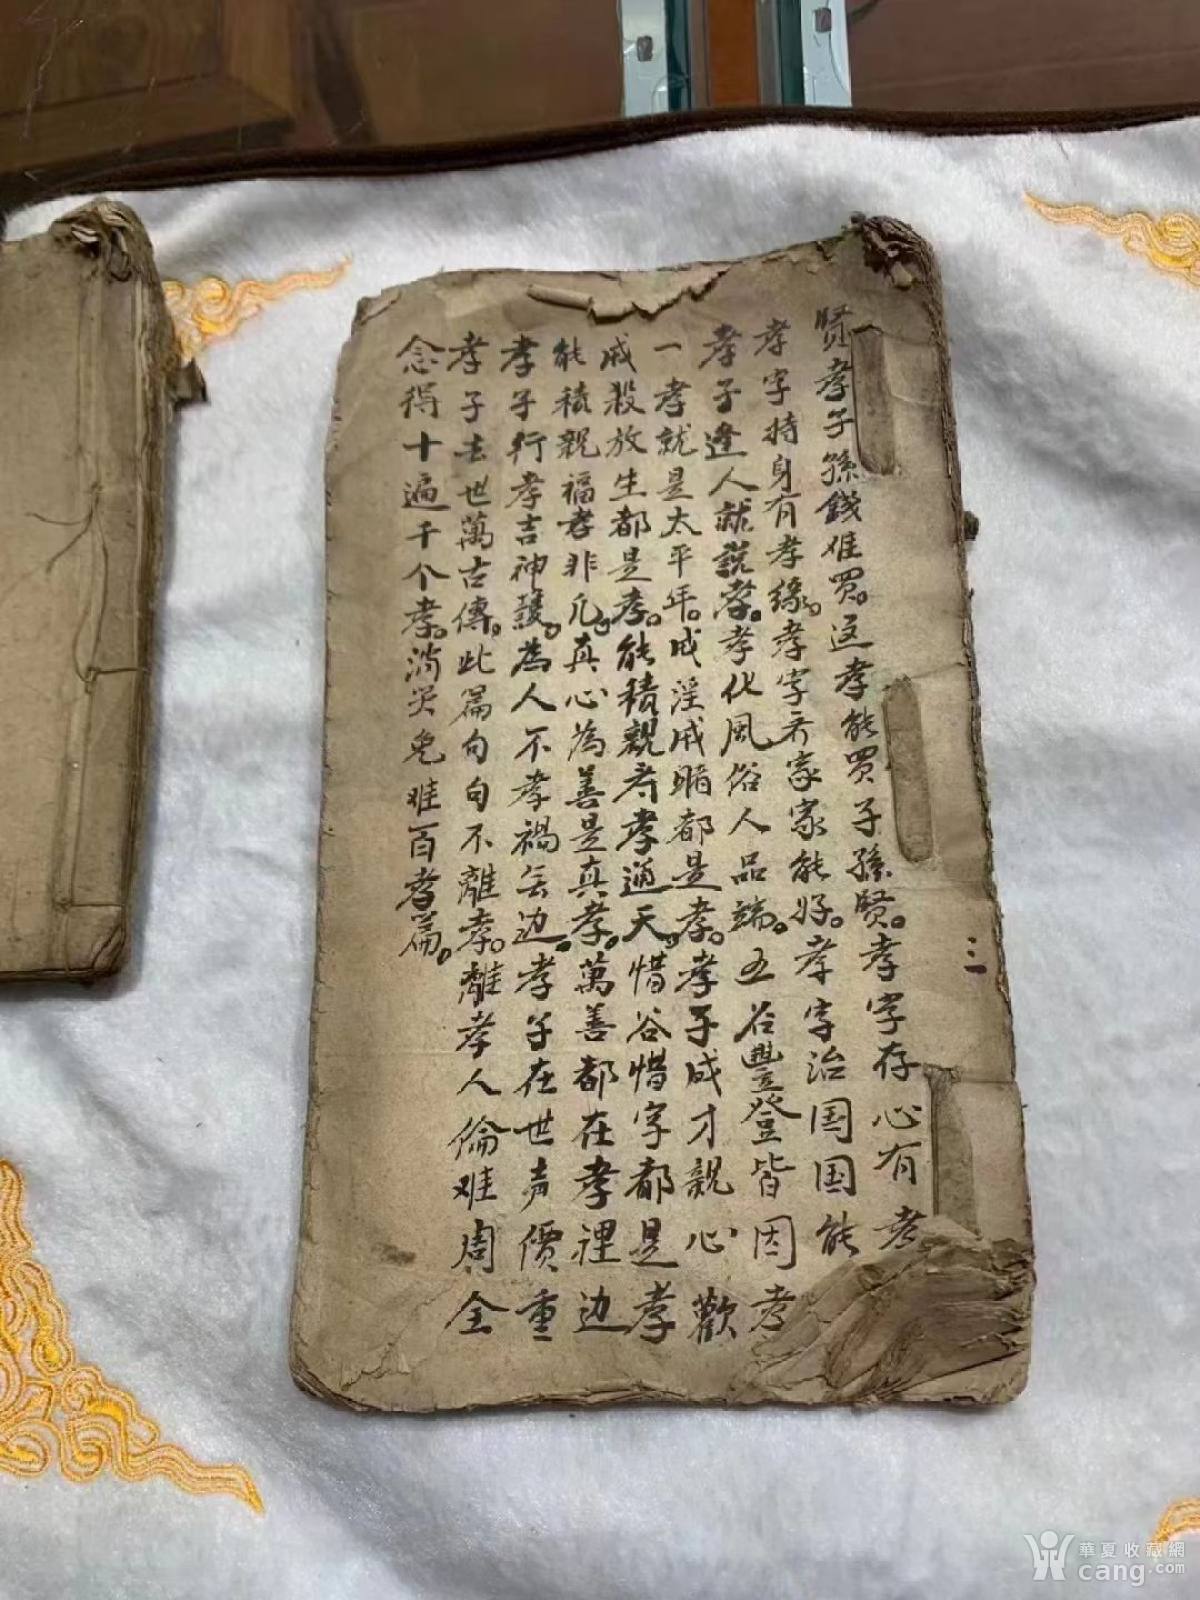 賢孝子孫錢难買。这孝能買子孫賢。孝字存心有孝
孝字持身有孝缘。孝字齐家家能好。孝字治国国能
孝子逢人就説孝。孝化風俗人品端。五谷豐登皆因孝
一孝就是太平年。戒淫戒賭都是孝。孝子成才親心歡
戒殺放生都是孝。能積親寿孝通天。惜谷惜字都是孝
能積親福孝非凡。真心為善是真孝。萬善都在孝裡边
孝子行孝吉神護。為人不孝禍无边。孝子在世声價重
孝子去世萬古傳。此篇句句不離孝。離孝人倫难周全
念得十遍千个孝。消灾免难百孝篇。
三
華夏收藏網
cang.com